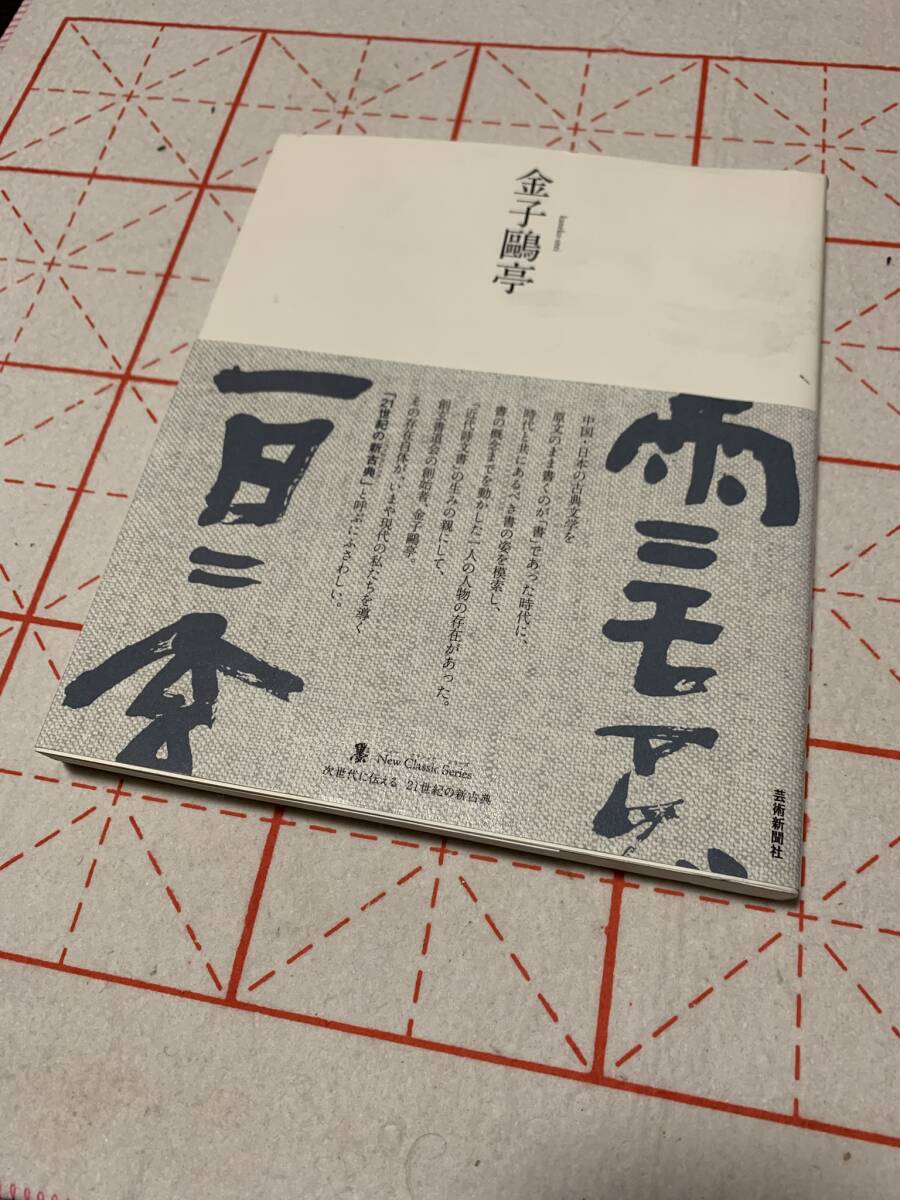 金子鷗亭
kaneko otei
雨ニモマ
一日ニ玄
中国・日本の古典文学を
原文のまま書くのが「書」であった時代に、
時代と共にあるべき書の姿を模索し、
書の概念までを動かした一人の人物の存在があった。
「近代詩文書」の生みの親にして、
創玄書道会の創始者、金子鷗亭。
その存在自体が、いまや現代の私たちを導く
「21世紀の新古典」と呼ぶにふさわしい。
墨 New Classic Series
次世代に伝える 21世紀の新古典
芸術新聞社